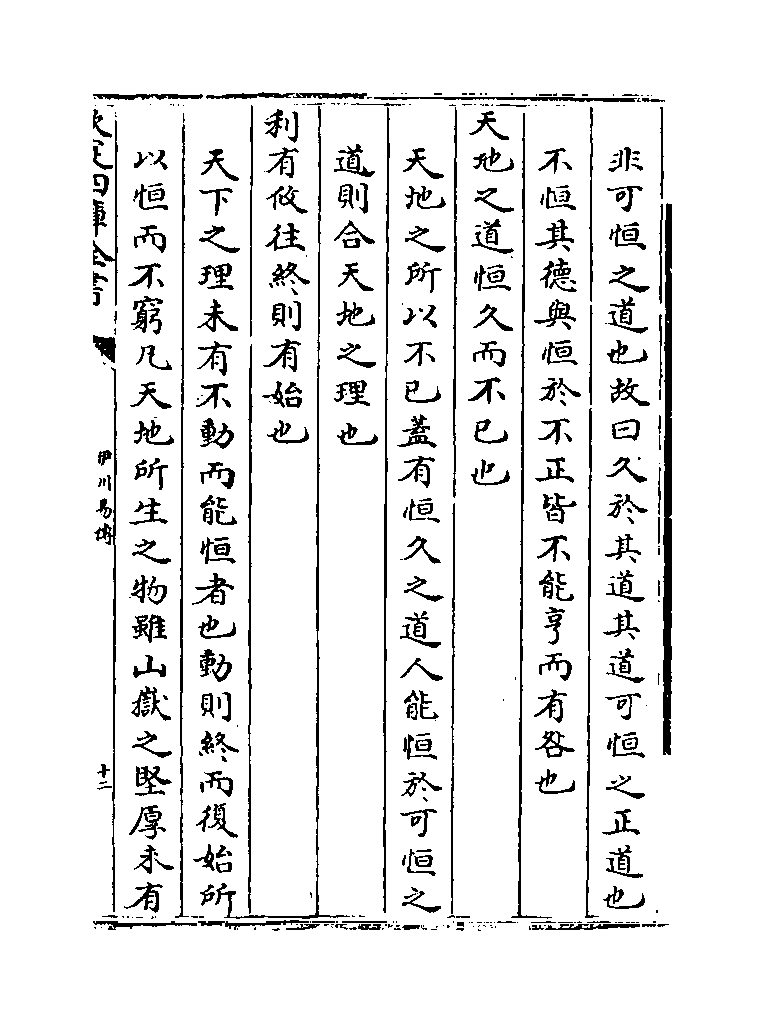 非可恒之道也故曰久於其道其道可恒之正道也
不恒其德與恒於不正皆不能亨而有咎也
天地之道恒久而不已也
天地之所以不已蓋有恒久之道人能恒於可恒之
道則合天地之理也
利有攸往終則有始也
天下之理未有不動而能恒者也動則終而復始所
以恒而不窮凡天地所生之物雖山嶽之堅厚未有
欽定四庫全書
伊川易傳
十二